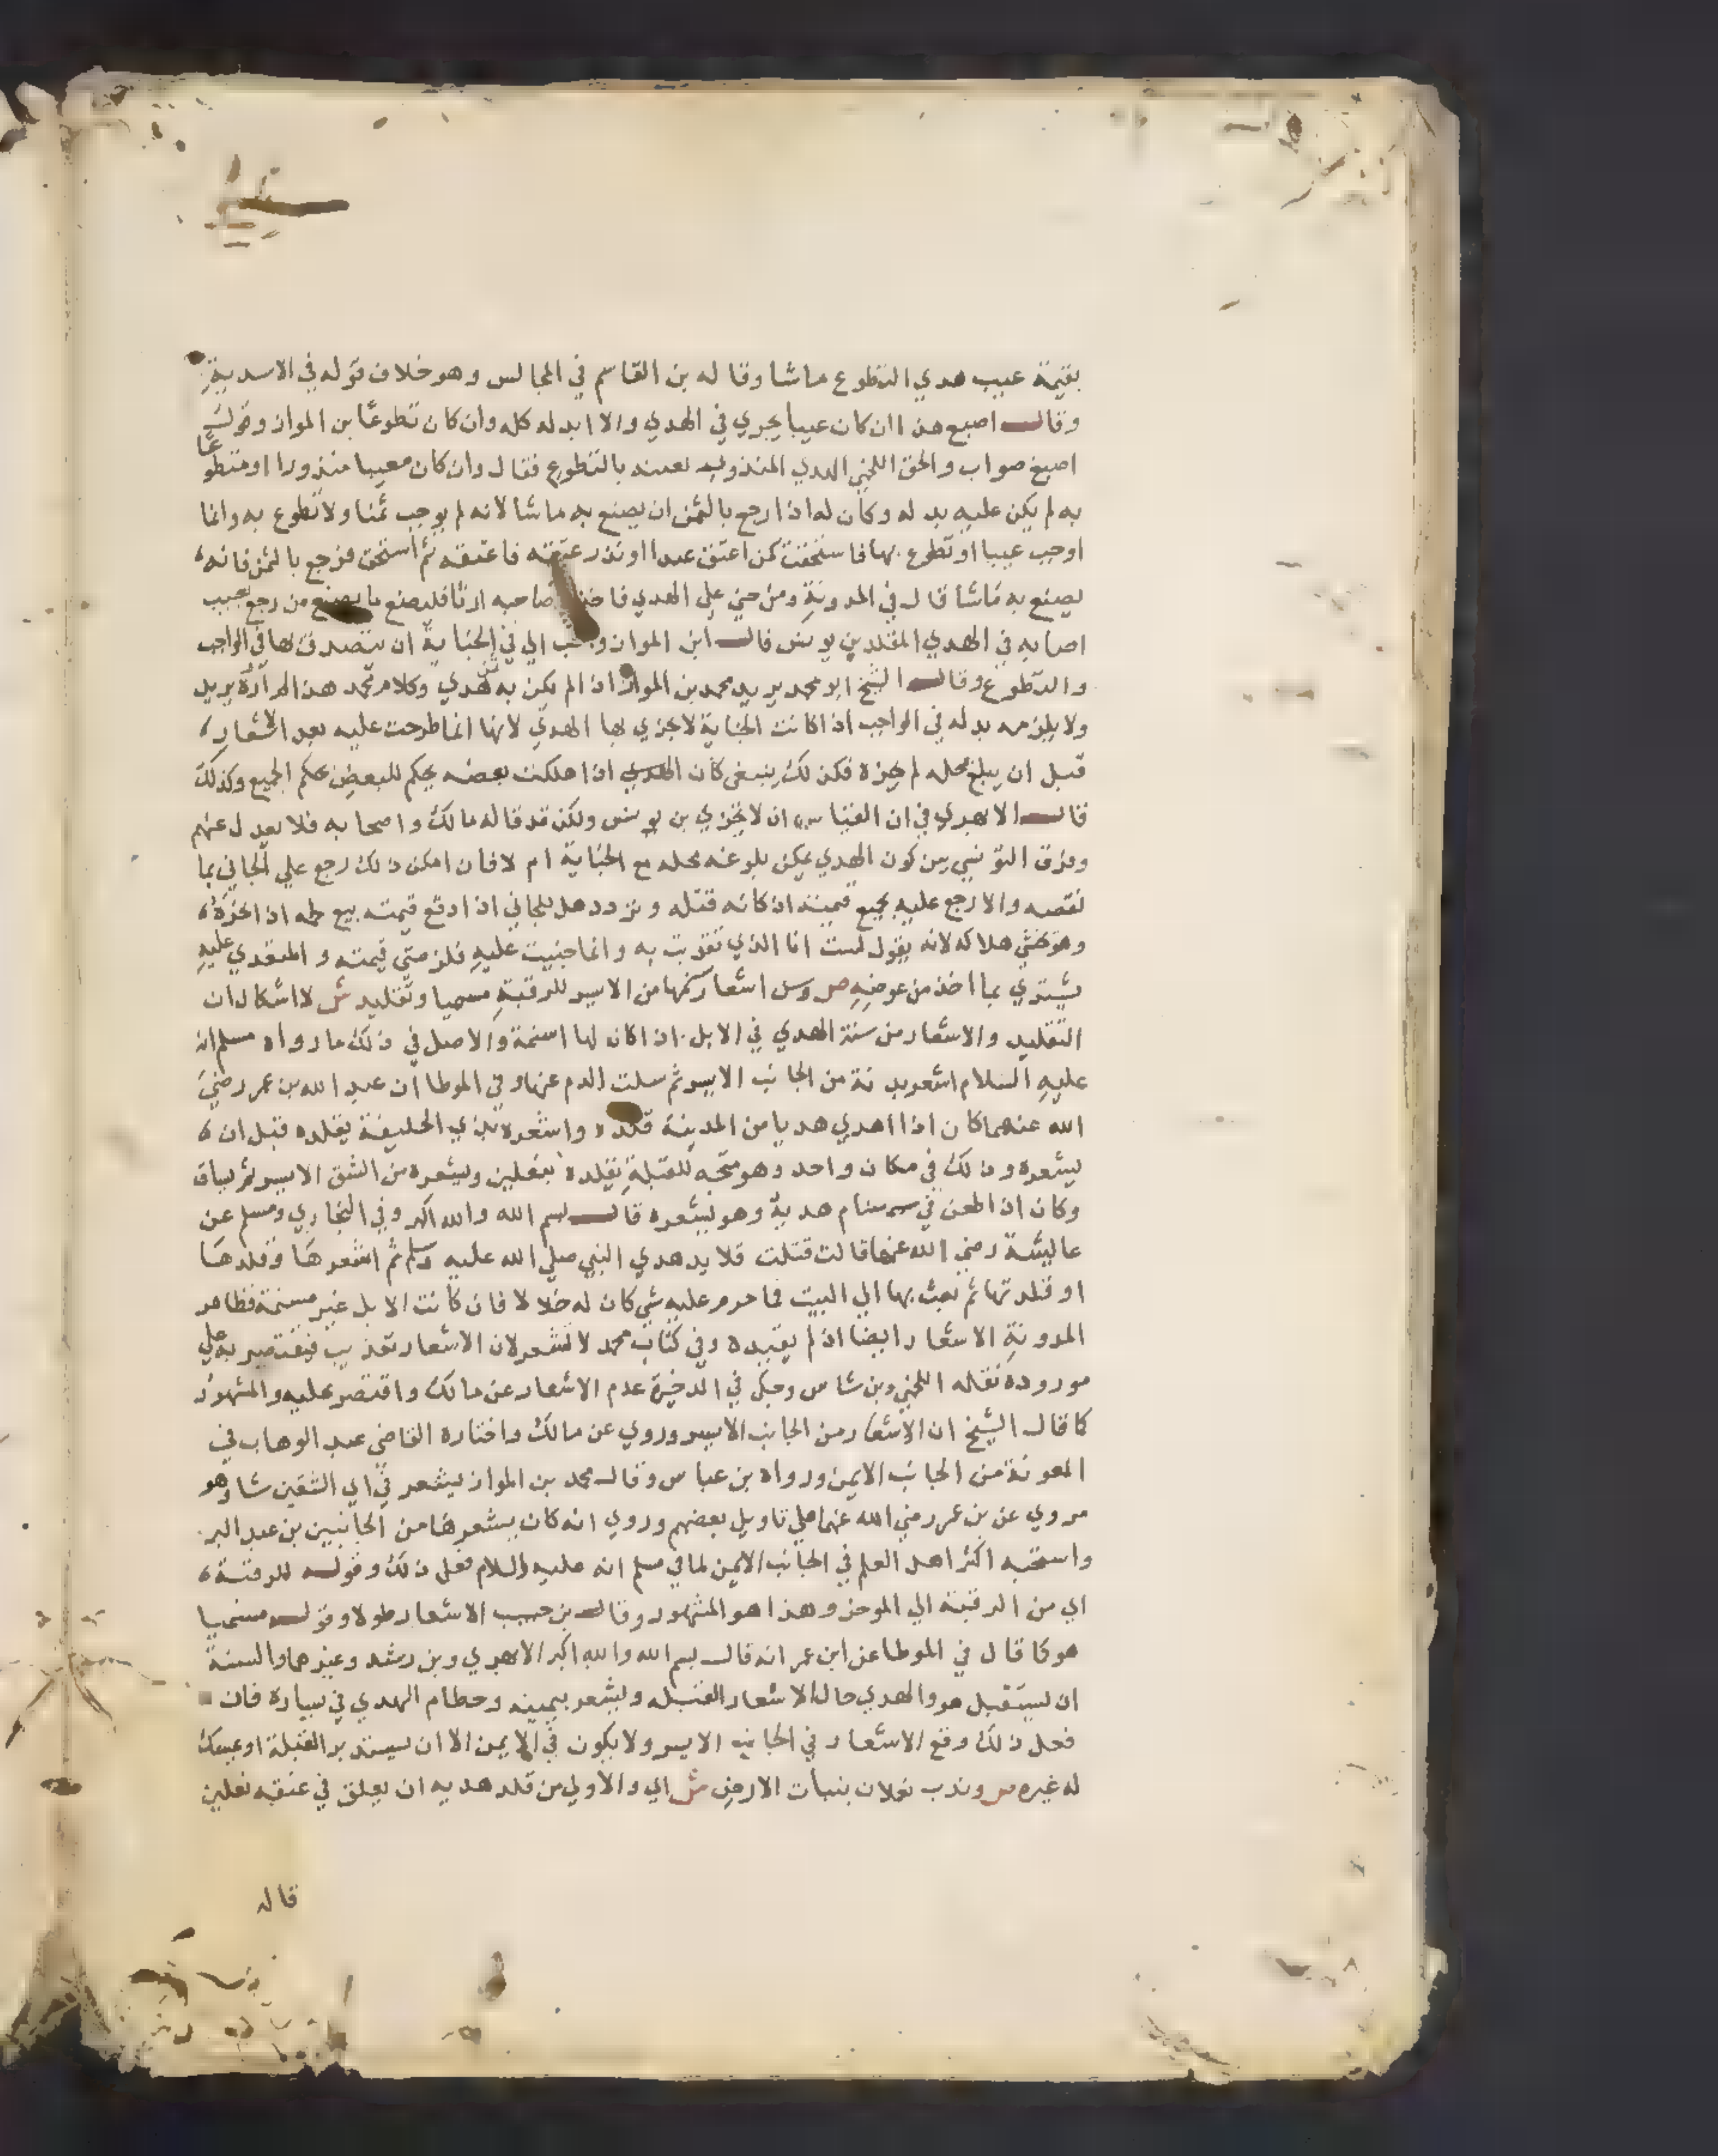 بقيمة عيب هدي التطوع ماشا وقاله بن القاسم في المجالس وهو خلاف قوله في الاسدية
وقال اصبع هذا ان كان عيبا يجزي في الهدي والا ابدله كله وان كان تطوعًا بن المواز وقول
اصبغ صواب والحق اللخمي الهدي المنذور بعينه بالتطوع فقال وان كان معيبا منذورا او متطوعًا
به لم يكن عليه بدله وكان له اذا رجع بالثمن ان يصنع به ماشا لانه لم يوجب ثمنا ولا تطوع به وانما
اوجب عيبا او تطوع بها فاستحقت كمن اعتق عبدا او نذر عتقه فاعتقه ثم استحق فرجع بالثمن فانه
يصنع به ماشا قال في المدونة ومن جني علي الهدي فاخذ صاحبه ارشا فليصنع ما يصنع من رجع بعيب
اصابه في الهدي المقلد بن يونس قال ابن المواز و الي في الجناية ان يتصدق بها في الواجب
والتطوع وقال الشيخ ابو محمد يريد محمد بن المواز اذا لم يكن به ثمن هدي وكلام محمد هذا المراده يريد
ولا يلزمه بدله في الواجب اذا كانت الجناية لا يجزي بها الهدي لانها انما طرحت عليه بعد الاشعار
قبل ان يبلغ محله لم يجزه فكذلك ينبغي كان الهدي اذا هلكت بعضه يحكم للبعض بحكم الجميع وكذلك
قال الابهري في ان القياس ان لا يجزي بن يونس ولكن قد قاله مالك واصحابه فلا يعدل عنهم
وفرق التونسي بين كون الهدي يمكن بلوغه محله مع الجناية ام لا فان امكن ذلك رجع علي الجاني بما
نقصه والا رجع عليه بجميع قيمته اذ كانه قتله وتردد هل للجاني اذا دفع قيمته بيع لحمه اذا نحره
وهو خشي هلاكه لانه يقول لست انا الذي تقربت به وانما جنيت عليه فلزمتني قيمته والمتعدي عليه
يشتري بما اخذ من عوضه ص وسن اشعار سنمها من الايسر للرقبة مسميا وتقليد ش لا اشكال ان
التقليد والاشعار من سنة الهدي في الابل اذا كان لها اسنمة والاصل في ذلك ما رواه مسلم انه
عليه السلام اشعر بدنة من الجانب الايسر ثم سلت الدم عنها وفي الموطا ان عبد الله بن عمر رضي
الله عنهما كان اذا اهدي هديا من المدينة قلده واشعره بذي الحليفة يقلده قبل ان
يشعره وذلك في مكان واحد وهو متجه للقبلة يقلده بنعلين ويشعره من الشق الايسر ثم يساق
وكان اذا طعن في سنام هديه وهو يشعره قال بسم الله والله اكبر وفي البخاري ومسلم عن
عايشة رضي الله عنها قالت فتلت قلايد هدي النبي صلي الله عليه وسلم ثم اشعرها وقلدها
او قلدتها ثم بعث بها الي البيت فما حرم عليه شي كان له حلالا فان كانت الابل غير مسنمة فظاهر
المدونة الاشعار ايضا اذ لم يقيده وفي كتاب محمد لا تشعر لان الاشعار تعذيب فيقتصر به علي
مورده نقله اللخمي وبن شاس وحكي في الذخيرة عدم الاشعار عن مالك واقتصر عليه والمشهور
كما قال الشيخ ان الاشعار من الجانب الايسر وروي عن مالك واختاره القاضي عبد الوهاب في
المعونة من الجانب الايمن ورواه بن عباس وقال محمد بن المواز يشعر في اي الشقين شا وهو
مروي عن بن عمر رضي الله عنهما علي تاويل بعضهم وروي انه كان يشعرها من الجانبين بن عبد البر
واستحبه اكثر اهل العلم في الجانب الايمن لما في مسلم انه عليه السلام فعل ذلك وقوله للرقبة
اي من الرقبة الي الموخر وهذا هو المشهور وقال بن حبيب الاشعار طولا وقوله مسميا
هو كما قال في الموطا عن ابن عمر انه قال بسم الله والله اكبر الابهري وبن رشد وغيرهما والسنة
ان يستقبل هو والهدي حالة الاشعار القبله ويشعر بيمينه وخطام الهدي في يساره فان
فعل ذلك وقع الاشعار في الجانب الايسر ولا يكون في الايمن الا ان يستدبر القبلة او يمسك
له غيره ص وندب نعلان بنبات الارض ش اي والاولي من قلد هديه ان يعلق في عنقه نعلين
قاله